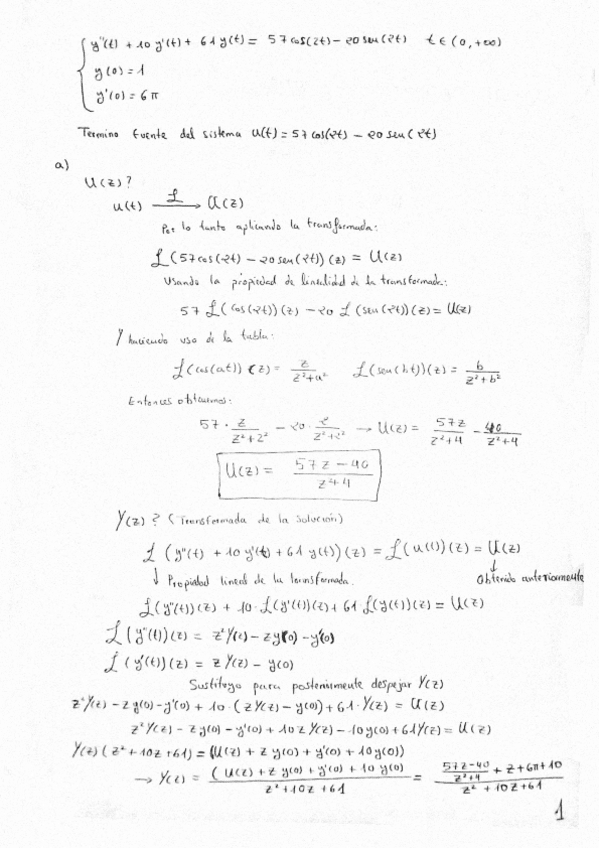 y''(t) + 10 y'(t) + 61 y(t) = 57 cos(2t) - 20 sen(2t)   t ∈ (0, +∞)
y(0) = 1
y'(0) = 6π
Termino fuente del sistema u(t) = 57 cos(2t) - 20 sen(2t)
a)
U(z)?
u(t) —ℒ→ U(z)
Por lo tanto aplicando la transformada:
ℒ(57 cos(2t) - 20 sen(2t))(z) = U(z)
Usando la propiedad de linealidad de la transformada:
57 ℒ(cos(2t))(z) - 20 ℒ(sen(2t))(z) = U(z)
Y haciendo uso de la tabla:
ℒ(cos(at))(z) = z/(z²+a²)   ℒ(sen(bt))(z) = b/(z²+b²)
Entonces obtenemos:
57 · z/(z²+2²) - 20 · 2/(z²+2²) → U(z) = 57z/(z²+4) - 40/(z²+4)
U(z) = (57z - 40)/(z²+4)
Y(z)? (Transformada de la solución)
ℒ(y''(t) + 10 y'(t) + 61 y(t))(z) = ℒ(u(t))(z) = U(z)
↓ Propiedad lineal de la transformada.   ↓ Obtenido anteriormente
ℒ(y''(t))(z) + 10 · ℒ(y'(t))(z) + 61 ℒ(y(t))(z) = U(z)
ℒ(y''(t))(z) = z² Y(z) - z y(0) - y'(0)
ℒ(y'(t))(z) = z Y(z) - y(0)
Sustituyo para posteriormente despejar Y(z)
z² Y(z) - z y(0) - y'(0) + 10 · (z Y(z) - y(0)) + 61 · Y(z) = U(z)
z² Y(z) - z y(0) - y'(0) + 10 z Y(z) - 10 y(0) + 61 Y(z) = U(z)
Y(z) (z² + 10z + 61) = (U(z) + z y(0) + y'(0) + 10 y(0))
→ Y(z) = (U(z) + z y(0) + y'(0) + 10 y(0))/(z² + 10z + 61) = ((57z-40)/(z²+4) + z + 6π + 10)/(z² + 10z + 61)
1